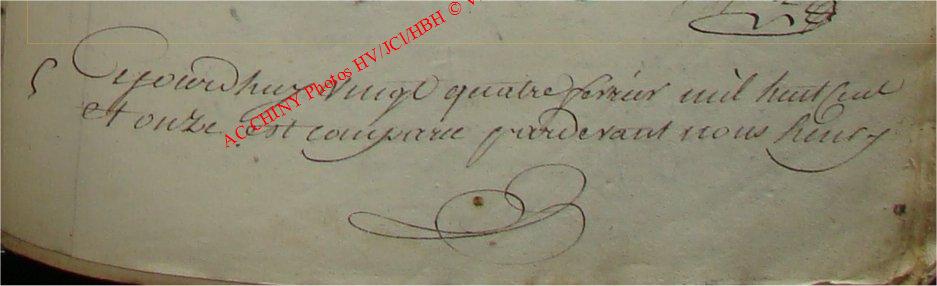 Cejourdhuy vingt quatre fevrier mil huit cent
et onze est comparu pardevant nous henry
AC CHINY Photos HV/JCl/HBH ©